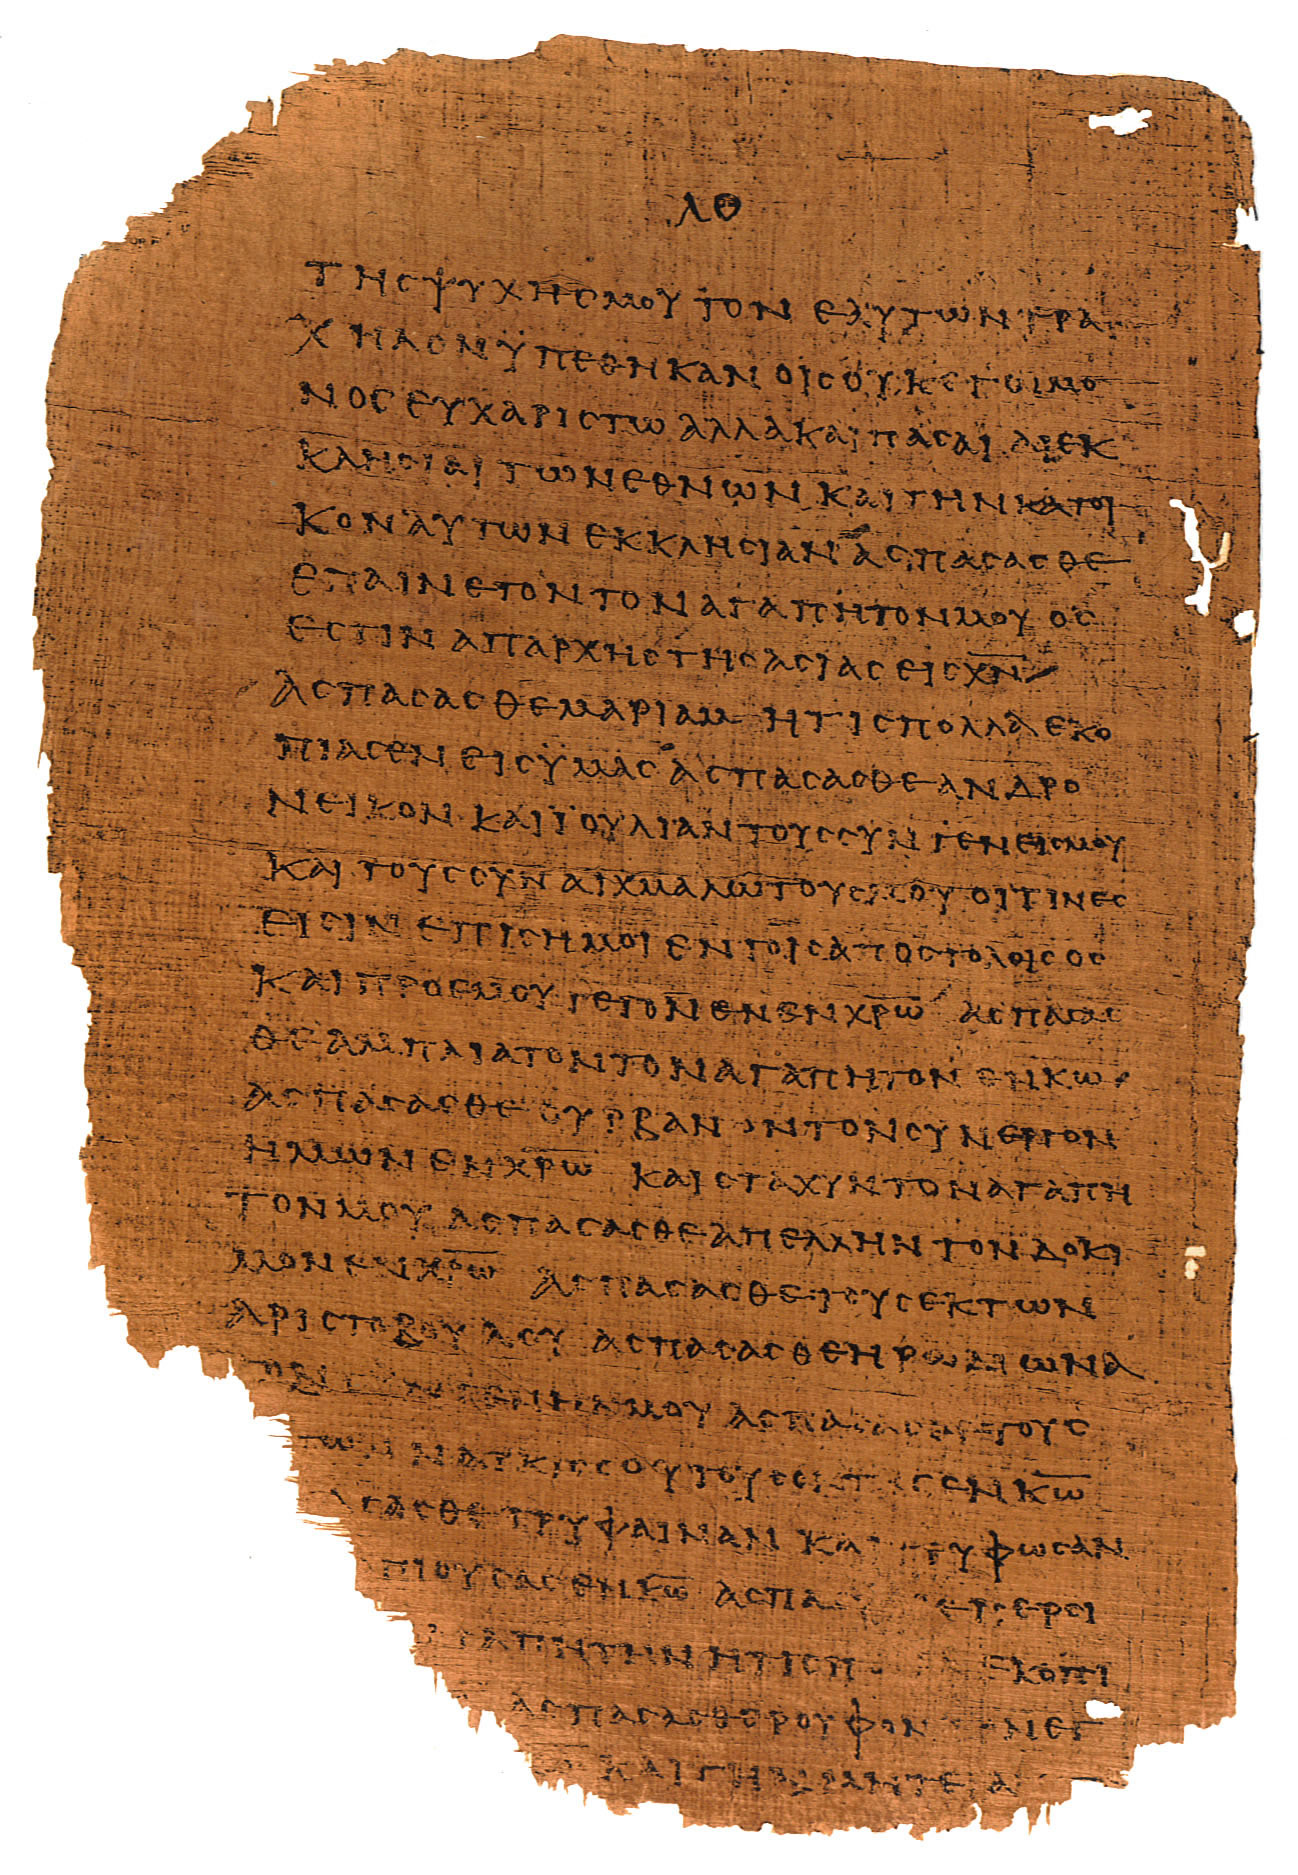 ΛΘ
ΤΗΣ ΨΥΧΗΣ ΜΟΥ ΤΟΝ ΕΑΥΤΩΝ ΤΡΑ
ΧΗΛΟΝ ΫΠΕΘΗΚΑΝ ΟΙΣ ΟΥΚ ΕΓΩ ΜΟ
ΝΟΣ ΕΥΧΑΡΙΣΤΩ ΑΛΛΑ ΚΑΙ ΠΑΣΑΙ ΑΙ ΕΚ
ΚΛΗΣΙΑΙ ΤΩΝ ΕΘΝΩΝ ΚΑΙ ΤΗΝ ΚΑΤΟΙ
ΚΟΝ ΑΥΤΩΝ ΕΚΚΛΗΣΙΑΝ ΑΣΠΑΣΑΣΘΕ
ΕΠΑΙΝΕΤΟΝ ΤΟΝ ΑΓΑΠΗΤΟΝ ΜΟΥ ΟΣ
ΕΣΤΙΝ ΑΠΑΡΧΗΣ ΤΗΣ ΑΣΙΑΣ ΕΙΣ Χ̅Ν̅
ΑΣΠΑΣΑΣΘΕ ΜΑΡΙΑΜ ΗΤΙΣ ΠΟΛΛΑ ΕΚΟ
ΠΙΑΣΕΝ ΕΙΣ ΫΜΑΣ ΑΣΠΑΣΑΣΘΕ ΑΝΔΡΟ
ΝΕΙΚΟΝ ΚΑΙ ΪΟΥΛΙΑΝ ΤΟΥΣ ΣΥΝΓΕΝΕΙΣ ΜΟΥ
ΚΑΙ ΤΟΥΣ ΣΥΝΑΙΧΜΑΛΩΤΟΥΣ ΜΟΥ ΟΙΤΙΝΕΣ
ΕΙΣΙΝ ΕΠΙΣΗΜΟΙ ΕΝ ΤΟΙΣ ΑΠΟΣΤΟΛΟΙΣ ΟΣ
ΚΑΙ ΠΡΟ ΕΜΟΥ ΓΕΓΟΝΕΝ ΕΝ Χ̅Ρ̅Ω̅ ΑΣΠΑΣΑΣ
ΘΕ ΑΜΠΛΙΑΤΟΝ ΤΟΝ ΑΓΑΠΗΤΟΝ ΕΝ Κ̅Ω̅
ΑΣΠΑΣΑΣΘΕ ΟΥΡΒΑΝΟΝ ΤΟΝ ΣΥΝΕΡΓΟΝ
ΗΜΩΝ ΕΝ Χ̅Ρ̅Ω̅ ΚΑΙ ΣΤΑΧΥΝ ΤΟΝ ΑΓΑΠΗ
ΤΟΝ ΜΟΥ ΑΣΠΑΣΑΣΘΕ ΑΠΕΛΛΗΝ ΤΟΝ ΔΟΚΙ
ΜΟΝ ΕΝ Χ̅Ρ̅Ω̅ ΑΣΠΑΣΑΣΘΕ ΤΟΥΣ ΕΚ ΤΩΝ
ΑΡΙΣΤΟΒΟΥΛΟΥ ΑΣΠΑΣΑΣΘΕ ΗΡΩΔΙΩΝΑ
ΜΟΥ ΑΣΠΑΣΑΣΘΕ ΤΟΥΣ
ΝΑΡΚΙΣΣΟΥ ΤΟΥΣ ΕΝ Κ̅Ω̅
ΣΑΣΘΕ ΤΡΥΦΑΙΝΑΝ ΚΑΙ ΤΡΥΦΩΣΑΝ
ΠΙΟΥΣΑΣ ΕΝ Κ̅Ω̅ ΑΣΠΑ ΠΕΡΣΙ
ΑΓΑΠΗΤΗΝ ΗΤΙΣ Π ΕΚΟΠΙ
ΑΣΠΑΣΑΣΘΕ ΡΟΥΦΟΝ
ΚΑΙ ΤΗΝ